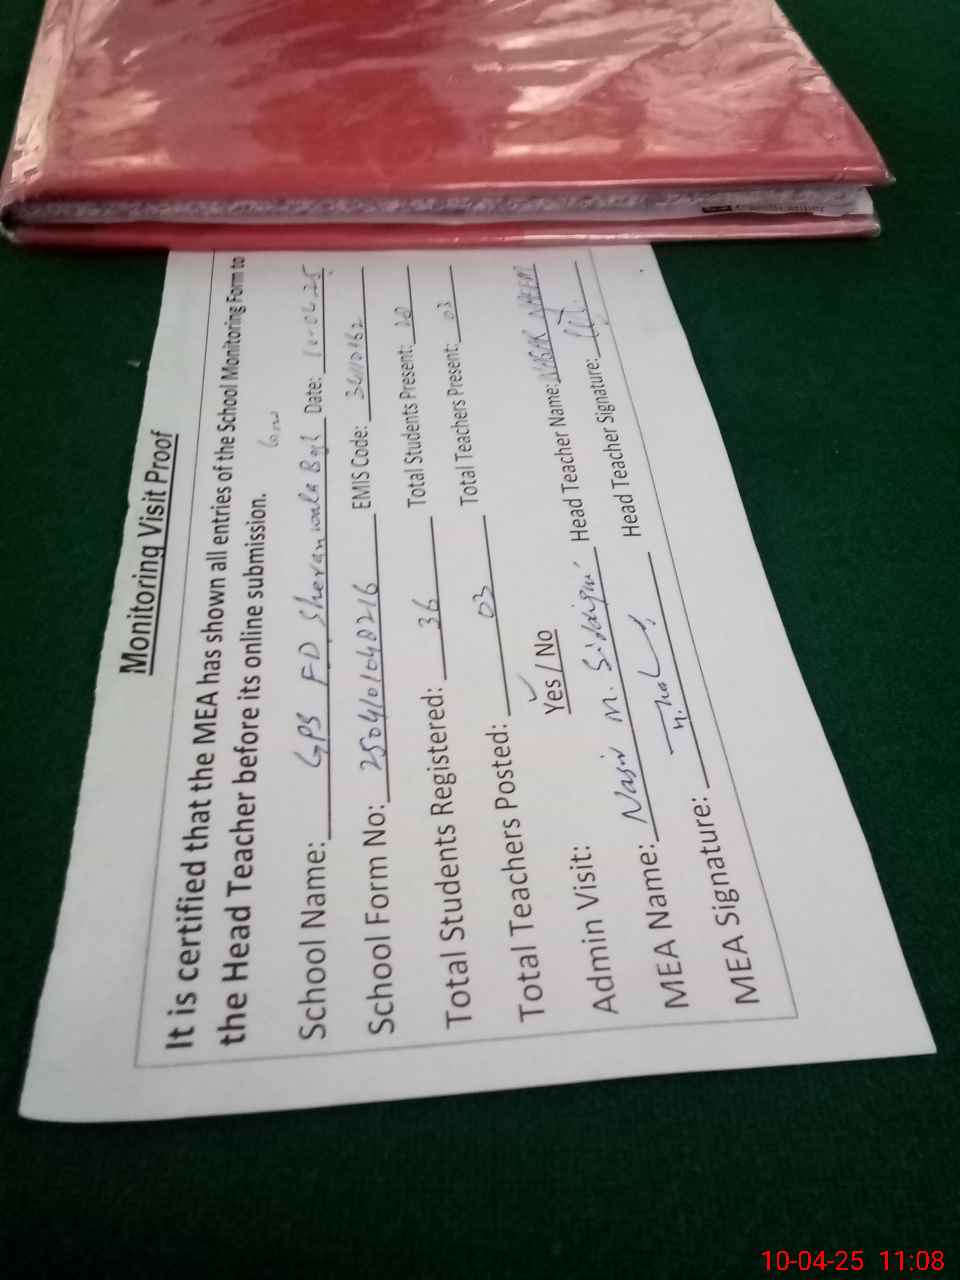 Monitoring Visit Proof
It is certified that the MEA has shown all entries of the School Monitoring Form to
the Head Teacher before its online submission.
School Name: GPS FD Sheranwala Bagh Date: 10-04-25
School Form No: 2504101048216 EMIS Code: 34110162
Total Students Registered: 36 Total Students Present: 20
Total Teachers Posted: 03 Total Teachers Present: 03
Admin Visit: Yes / No
MEA Name: Nasir M. Siddiqui Head Teacher Name: NAEEM
MEA Signature: Head Teacher Signature:
10-04-25 11:08